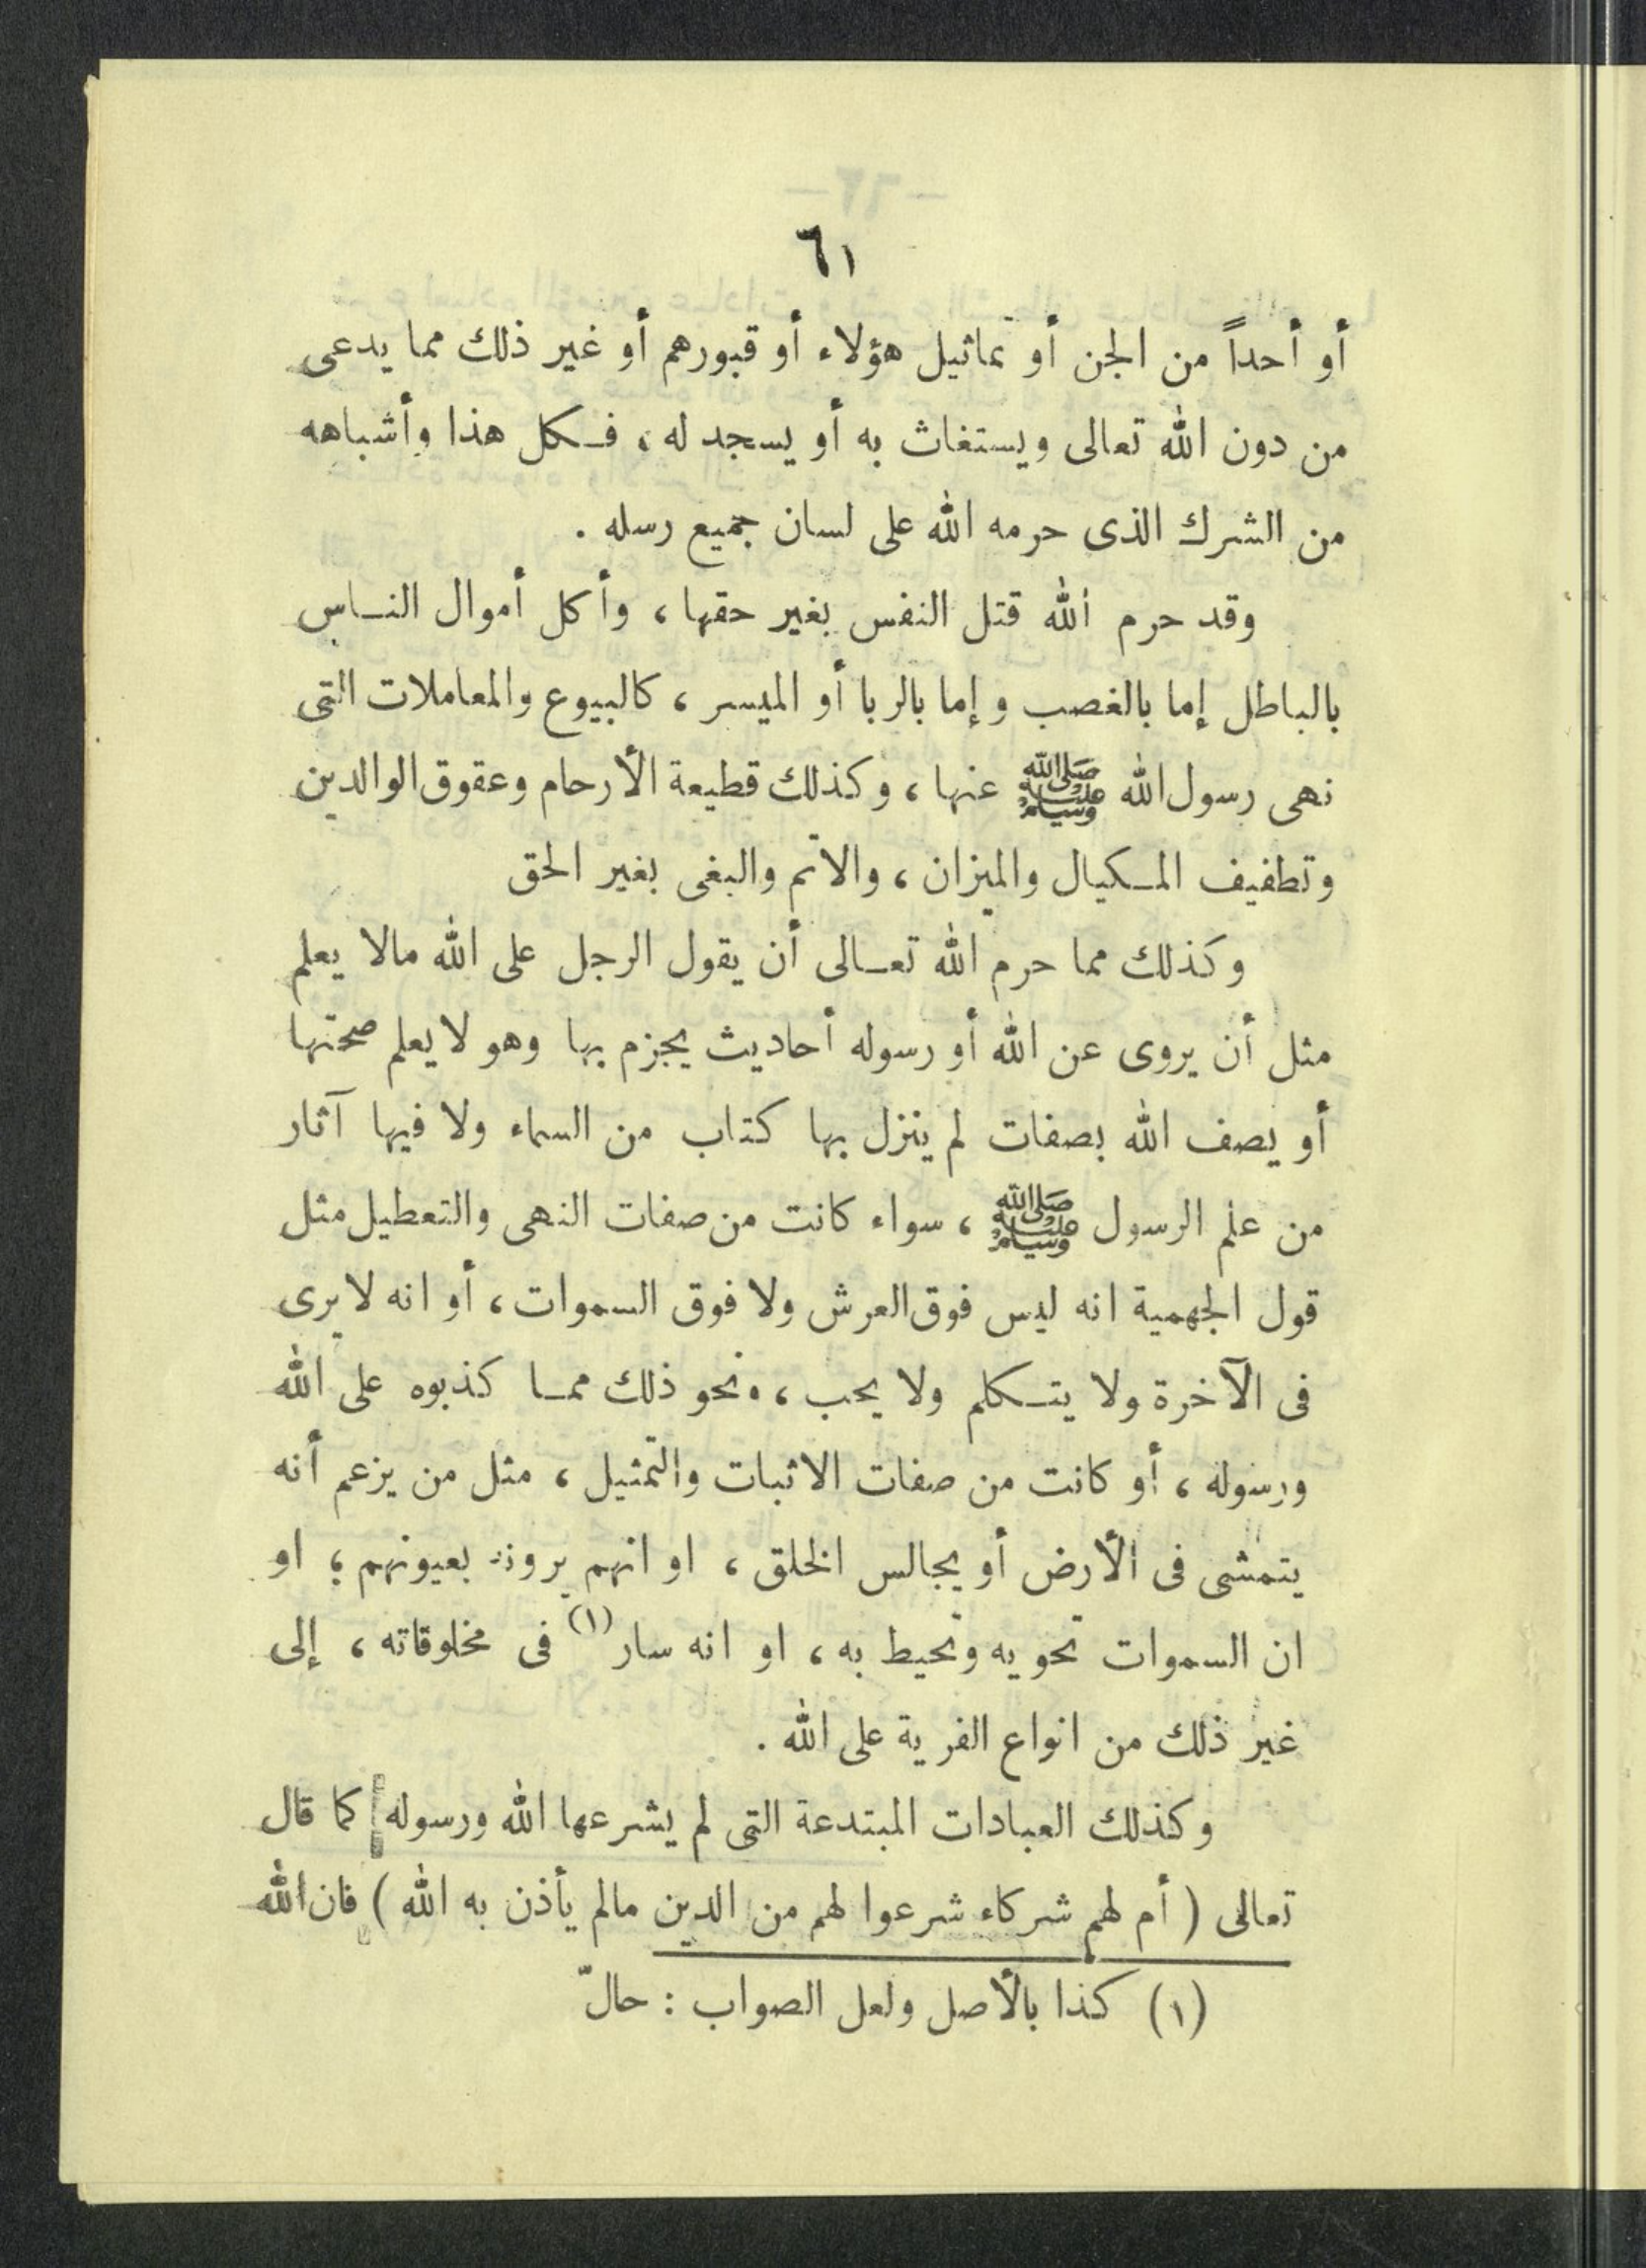 ٦١
أو أحداً من الجن أو تماثيل هؤلاء أو قبورهم أو غير ذلك مما يدعى
من دون الله تعالى ويستغاث به أو يسجد له ، فكل هذا وأشباهه
من الشرك الذى حرمه الله على لسان جميع رسله .
وقد حرم الله قتل النفس بغير حقها ، وأكل أموال الناس
بالباطل إما بالغصب وإما بالربا أو الميسر ، كالبيوع والمعاملات التى
نهى رسول الله ﷺ عنها ، وكذلك قطيعة الأرحام وعقوق الوالدين
وتطفيف المكيال والميزان ، والاثم والبغى بغير الحق
وكذلك مما حرم الله تعالى أن يقول الرجل على الله مالا يعلم
مثل أن يروى عن الله أو رسوله أحاديث يجزم بها وهو لا يعلم صحتها
أو يصف الله بصفات لم ينزل بها كتاب من السماء ولا فيها آثار
من علم الرسول ﷺ ، سواء كانت من صفات النهى والتعطيل مثل
قول الجهمية انه ليس فوق العرش ولا فوق السموات ، أو انه لا يرى
فى الآخرة ولا يتكلم ولا يحب ، ونحو ذلك مما كذبوه على الله
ورسوله ، أو كانت من صفات الاثبات والتمثيل ، مثل من يزعم أنه
يتمشى فى الأرض أو يجالس الخلق ، او انهم يرونه بعيونهم ؛ او
ان السموات تحويه وتحيط به ، او انه سار (١) فى مخلوقاته ، إلى
غير ذلك من انواع الفرية على الله .
وكذلك العبادات المبتدعة التى لم يشرعها الله ورسوله كما قال
تعالى ( أم لهم شركاء شرعوا لهم من الدين مالم يأذن به الله ) فان الله
(١) كذا بالأصل ولعل الصواب : حالّ